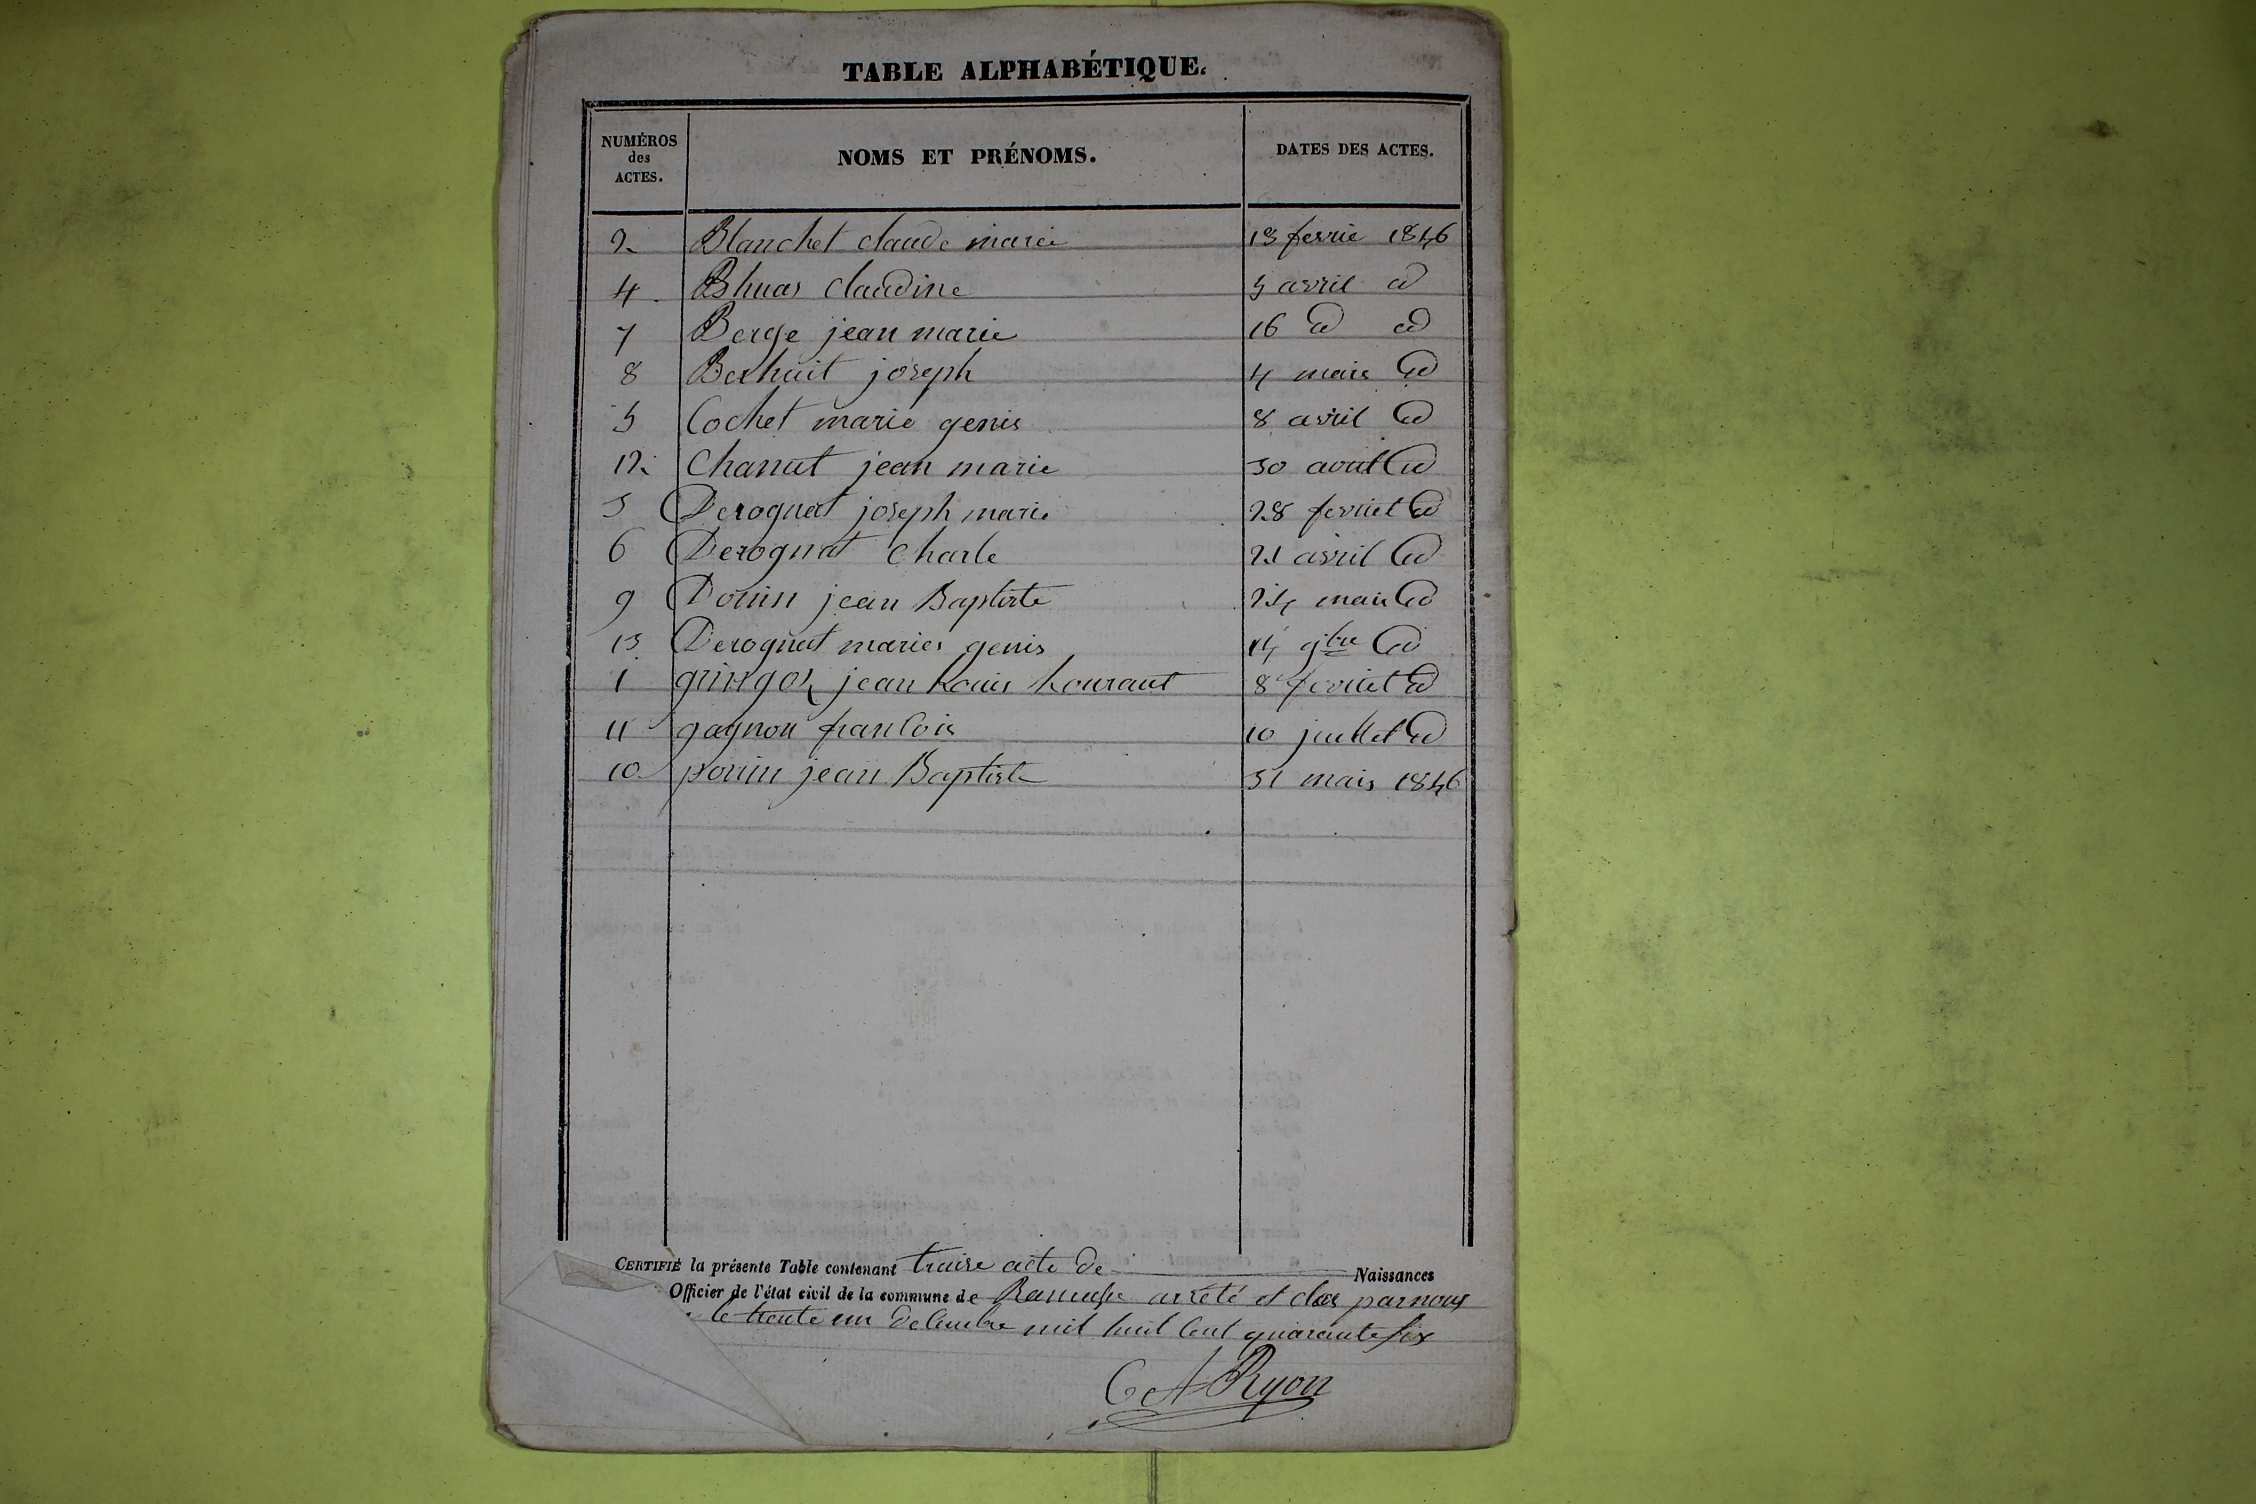 TABLE ALPHABÉTIQUE.
NUMÉROS des ACTES. NOMS ET PRÉNOMS. DATES DES ACTES.
2 Blanchet claude marie 13 fevrie 1846
4 Bhuas claudine 5 avril d
7 Berge jean marie 16 d d
8 joseph 4 mais d
5 Cochet marie genis 8 avril d
12 Chanut jean marie 30 d
3 Derognat joseph marie 28 d
6 Derognat Charle 21 avril d
9 Douin jean Baptiste 24 mais d
13 Derognat maries genis 14 9bre d
1 gringoz jean Louis Lourant 8 d
11 gagnon francois 10 juillet d
10 pouin jean Baptiste 31 mais 1846
CERTIFIÉ la présente Table contenant traise acte de Naissances
Officier de l'état civil de la commune de Ramasse arrêté et clos par nous
le trente un decembre mil huit cent quarante six
Ryon